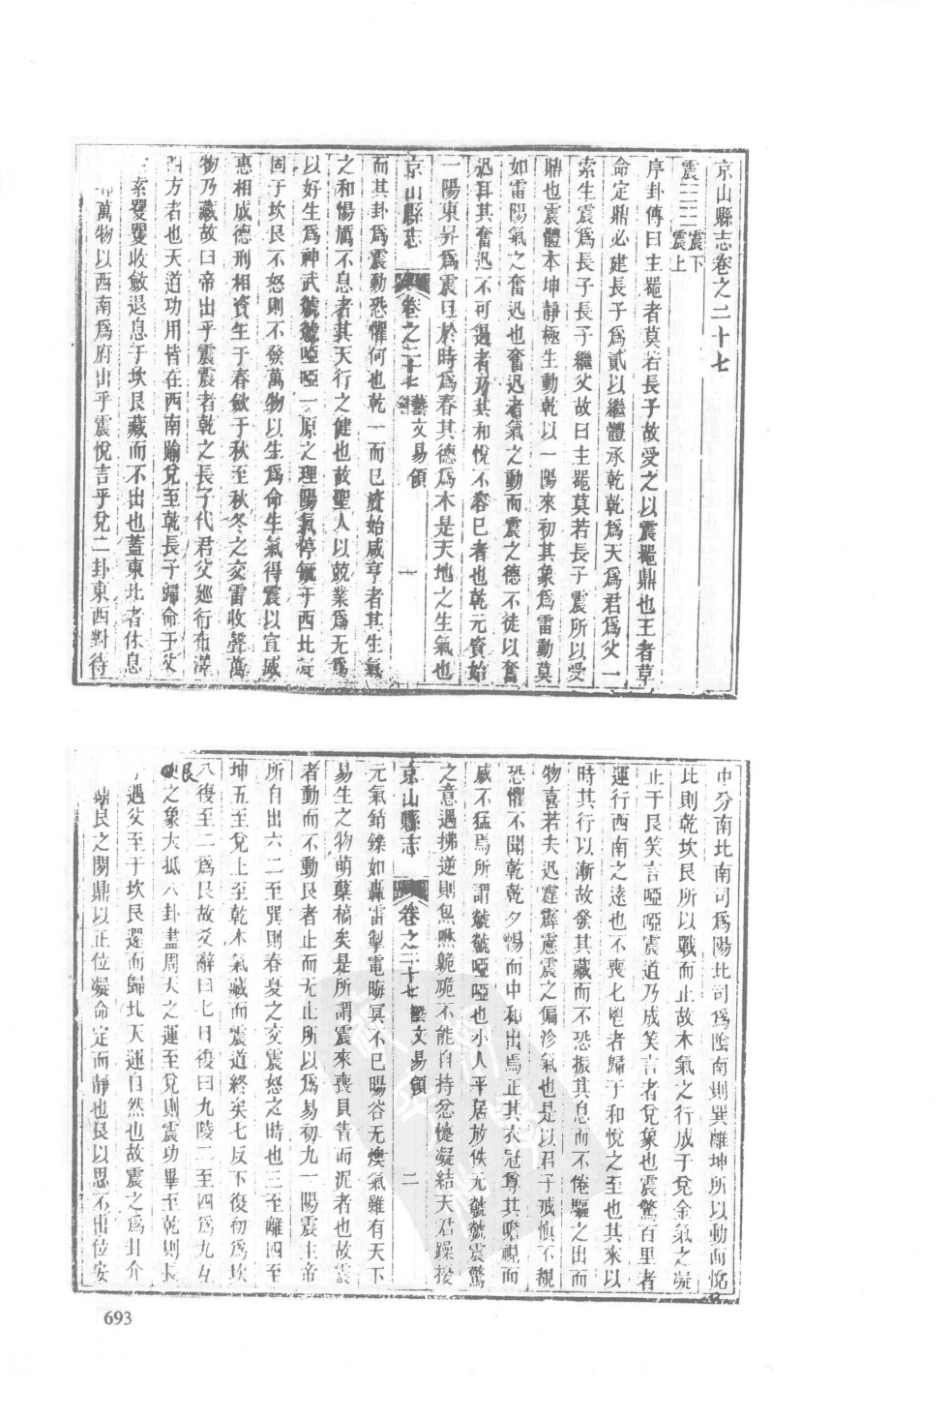 京山縣志卷之二十七
震☳☳震下震上
序卦傳曰主噐者莫若長子故受之以震噐鼎也王者草
命定鼎必建長子爲貳以繼體承乾乾爲天爲君爲父一
索生震爲長子長子繼父故曰主噐莫若長子震所以受
鼎也震體本坤靜極生動乾以一陽來初其象爲雷動莫
如雷陽氣之奮迅也奮迅者氣之動而震之德不徒以奮
迅耳其奮迅不可遏者乃其和悅不容已者也乾元資始
一陽東昇爲震日於時爲春其德爲木是天地之生氣也
京山縣志 卷之二十七 藝文易領 一
而其卦爲震動恐懼何也乾一而已資始咸亨者其生氣
之和惕厲不息者其天行之健也故聖人以兢業爲无爲
以好生爲神武虩虩啞啞一原之理陽氣停毓于西北凝
固于坎艮不怒則不發萬物以生爲命生氣得震以宣威
惠相成德刑相資生于春斂于秋至秋冬之交雷收聲萬
物乃藏故曰帝出乎震震者乾之長子代君父廵行布澤
四方者也天道功用皆在西南踰兌至乾長子歸命于父
索矍矍收斂退息于坎艮藏而不出也蓋東北者休息
萬物以西南爲府出乎震悅言乎兌二卦東西對待
中分南北南司爲陽北司爲陰南則巽離坤所以動而悅
北則乾坎艮所以戰而止故木氣之行成于兌金氣之凝
止于艮笑言啞啞震道乃成笑言者兌象也震驚百里者
運行西南之遠也不喪七鬯者歸于和悅之至也其來以
時其行以漸故發其藏而不恐振其息而不倦驅之出而
物喜若夫迅霆霹靂震之偏沴氣也是以君子戒慎不覩
恐懼不聞乾乾夕惕而中和出焉正其衣冠尊其瞻視而
威不猛焉所謂虩虩啞啞也小人平居放佚无虩虩震驚
之意遇拂逆則炰烋臲卼不能自持忿懥凝結天君躁擾
京山縣志 卷之二十七 藝文易領 二
元氣銷鑠如轟雷掣電晦冥不已暘谷无燠氣雖有天下
易生之物萌蘖槁矣是所謂震來喪貝眚而泥者也故震
者動而不動艮者止而无止所以爲易初九一陽震主帝
所自出六二至巽則春夏之交震怒之時也三至離四至
坤五至兌上至乾木氣藏而震道終矣七反下復初爲坎
八復至二爲艮故爻辭曰七日復曰九陵二至四爲九互
艮之象大抵八卦盡周天之運至兌則震功畢至乾則長
遇父至于坎艮還而歸北天運自然也故震之爲卦介
端艮之閒鼎以正位凝命定而靜也艮以思不出位安
693